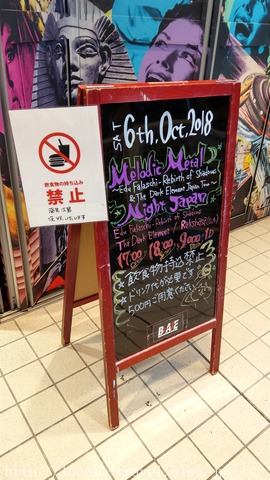 飲食物の持ち込み
禁止
SAT 6th, Oct, 2018
Melodic Metal
~Edu Falaschi-Rebirth of Shadows
& The Dark Element Japan Tour~
Night Japan
Edu Falaschi-Rebirth of Shadows
The Dark Element /
17:00 18:00
☆飲食物持込禁止
☆ドリンク代が必要です
500円ご用意ください
B.A.E